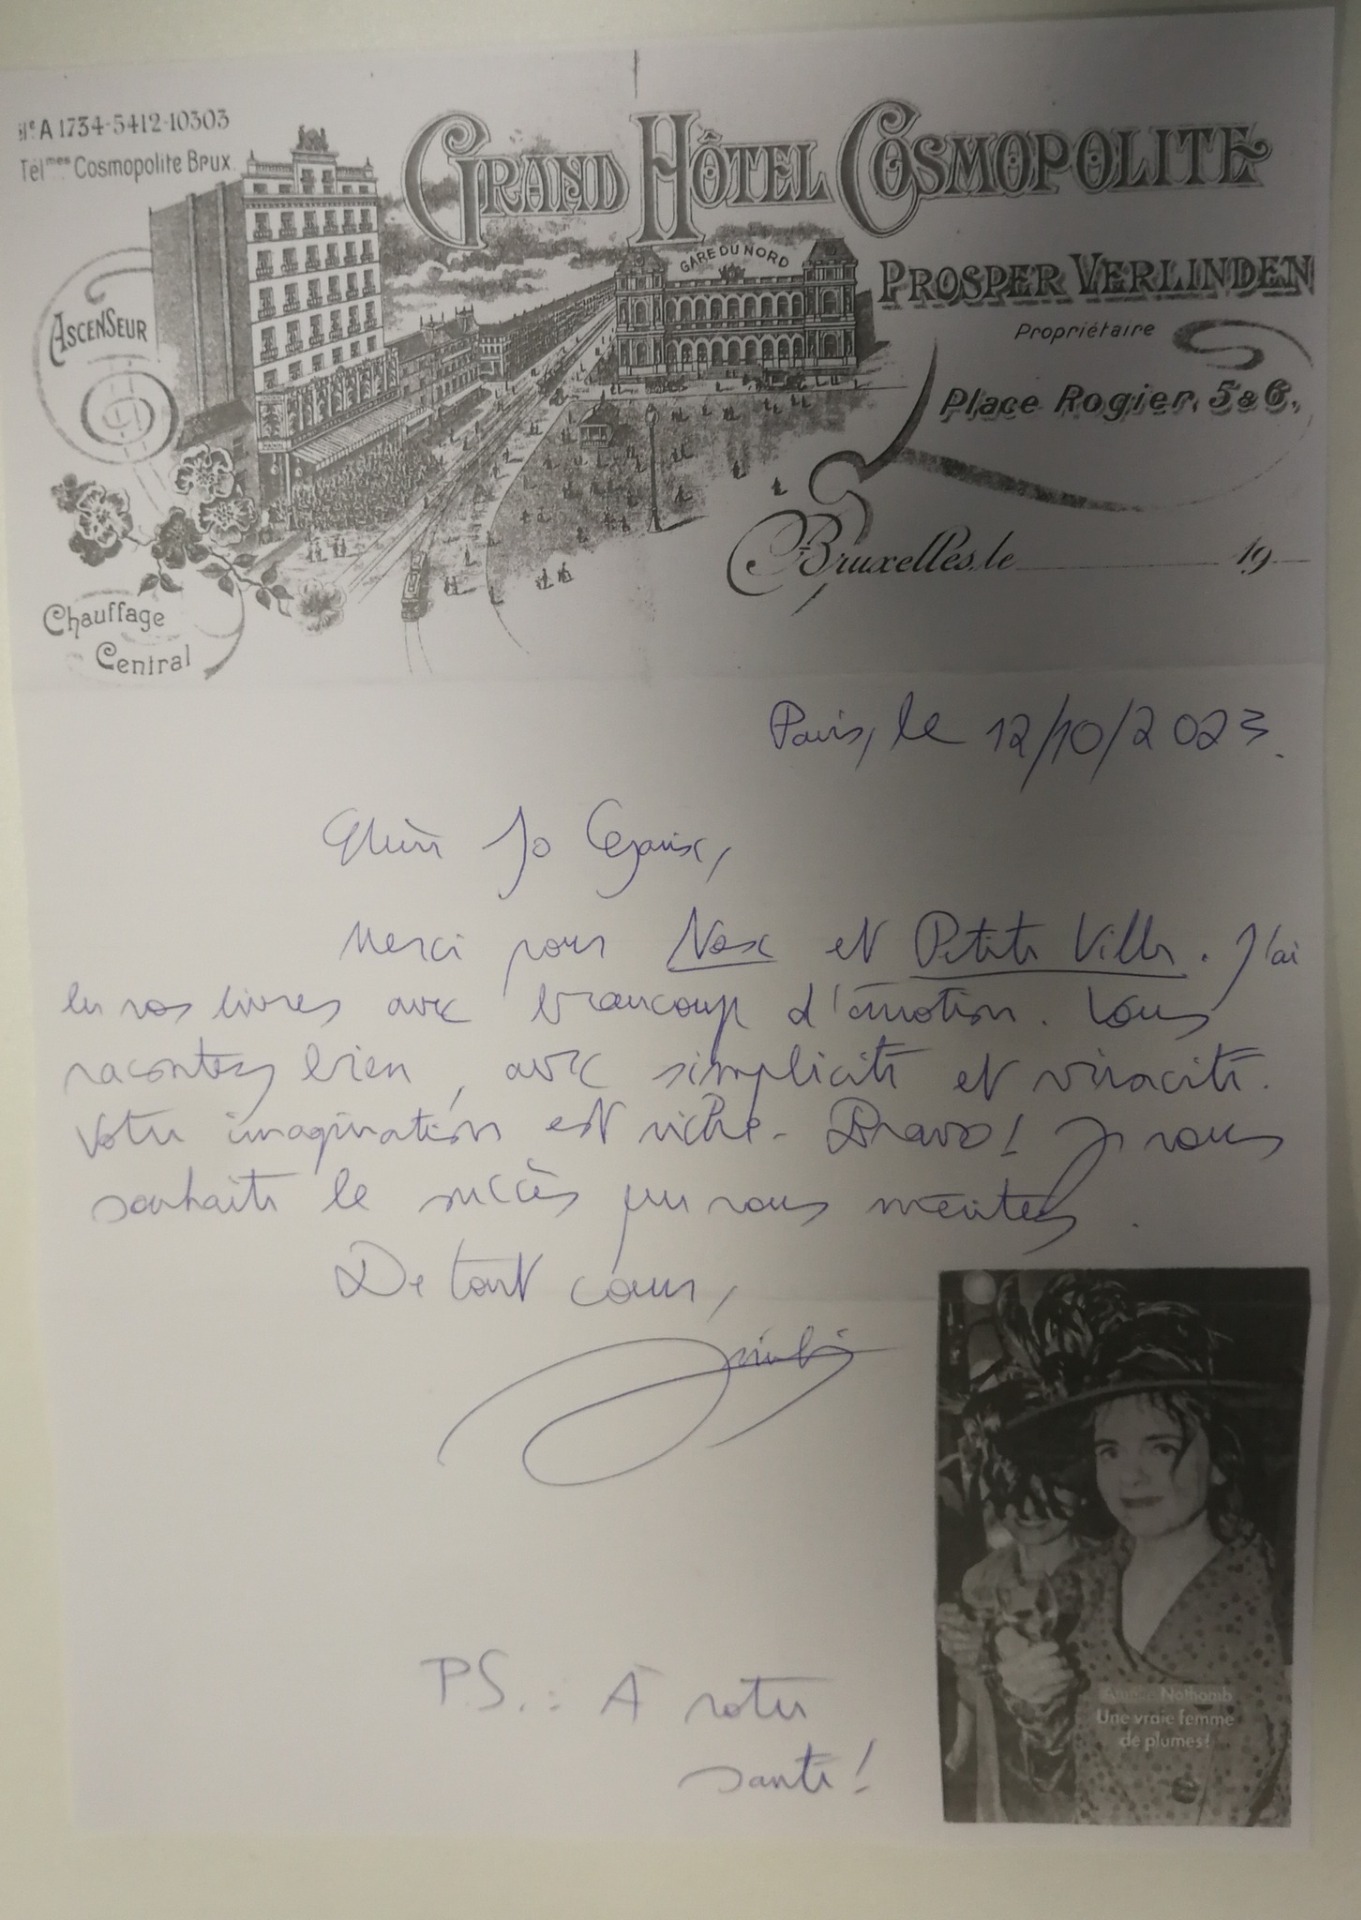 A 1734-5412-10303
Tél.mes Cosmopolite Brux.
GRAND HÔTEL COSMOPOLITE
GARE DU NORD
PROSPER VERLINDEN
Propriétaire
ASCENSEUR
Place Rogier, 5 & 6.
Bruxelles, le 19
Chauffage
Central
Paris, le 12/10/2023.
Jo
Merci pour Nox et Petite Ville. J'ai
lu vos livres avec beaucoup d'émotion. Vous
racontez bien, avec simplicité et vivacité.
Votre imagination est riche. Bravo! Je vous
souhaite le succès que vous méritez.
De tout cœur,
P.S.: À votre
santé!
Amélie Nothomb
Une vraie femme
de plumes!